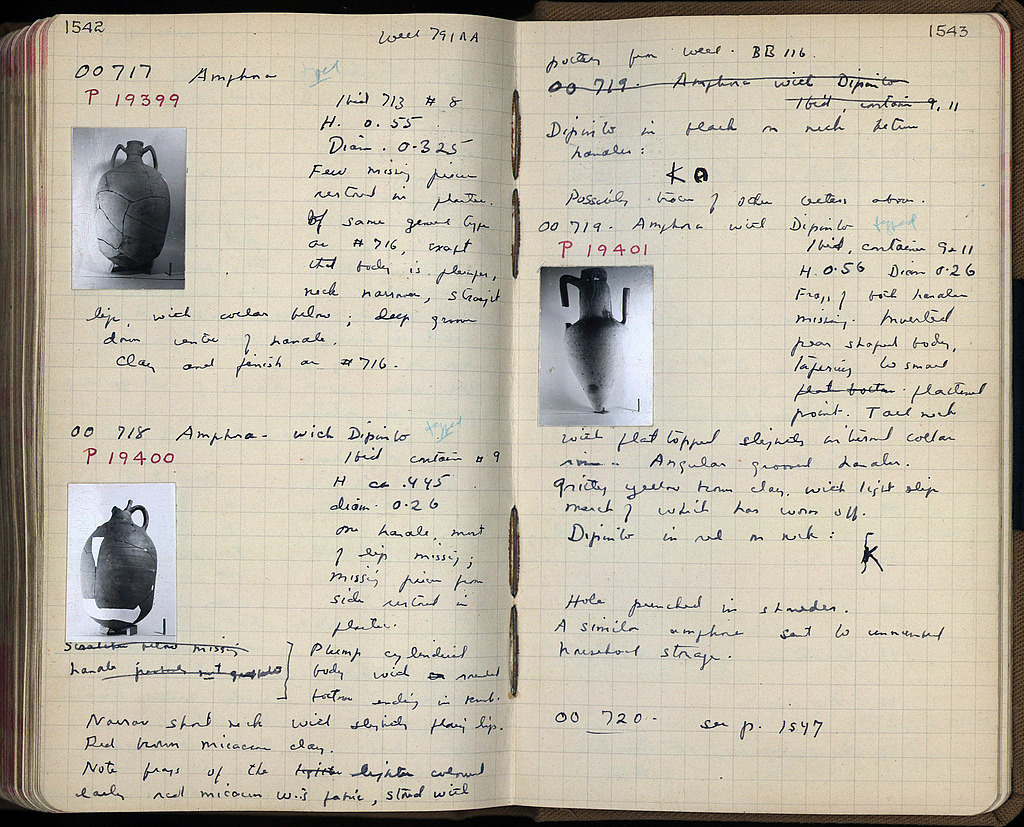 1542
Well 791 AA
OO 717 Amphora
typed
P 19399
Ibid 713 # 8
H. 0.55
Diam. 0.325
Few missing pieces
restored in plaster.
Of same general type
as # 716, except
that body is plumper,
neck narrower, straight
lip, with collar below; deep groove
down center of handle.
Clay and finish as # 716.
OO 718 Amphora - with Dipinto
typed
P 19400
Ibid container # 9
H ca .445
diam. 0.26
one handle, most
of lip missing;
missing pieces from
side restored in
plaster.
below missing
handle
Plump cylindrical
body with rounded
bottom ending in knob.
Narrow short neck with slightly flaring lip.
Red brown micaceous clay.
Note frags of the lighter colored
early red micaceous w.j. fabric, stored with
1543
pottery from well. BB 116.
OO 719. Amphora with Dipinto
Ibid, contain 9, 11
Dipinto in black on neck between
handles:
K
Possibly traces of other letters above.
OO 719. Amphora with Dipinto
typed
P 19401
Ibid, container 9 & 11
H. 0.56 Diam 0.26
Frags of both handles
missing. Inverted
pear shaped body,
tapering to small
flat bottom. flattened
point. Tall neck
with flat topped slightly outturned collar
rim. Angular grooved handles.
Gritty yellow brown clay, with light slip
much of which has worn off.
Dipinto in red on neck:
K
Hole punched in shoulder.
A similar amphora sent to unmended
household storage.
OO 720. see p. 1547